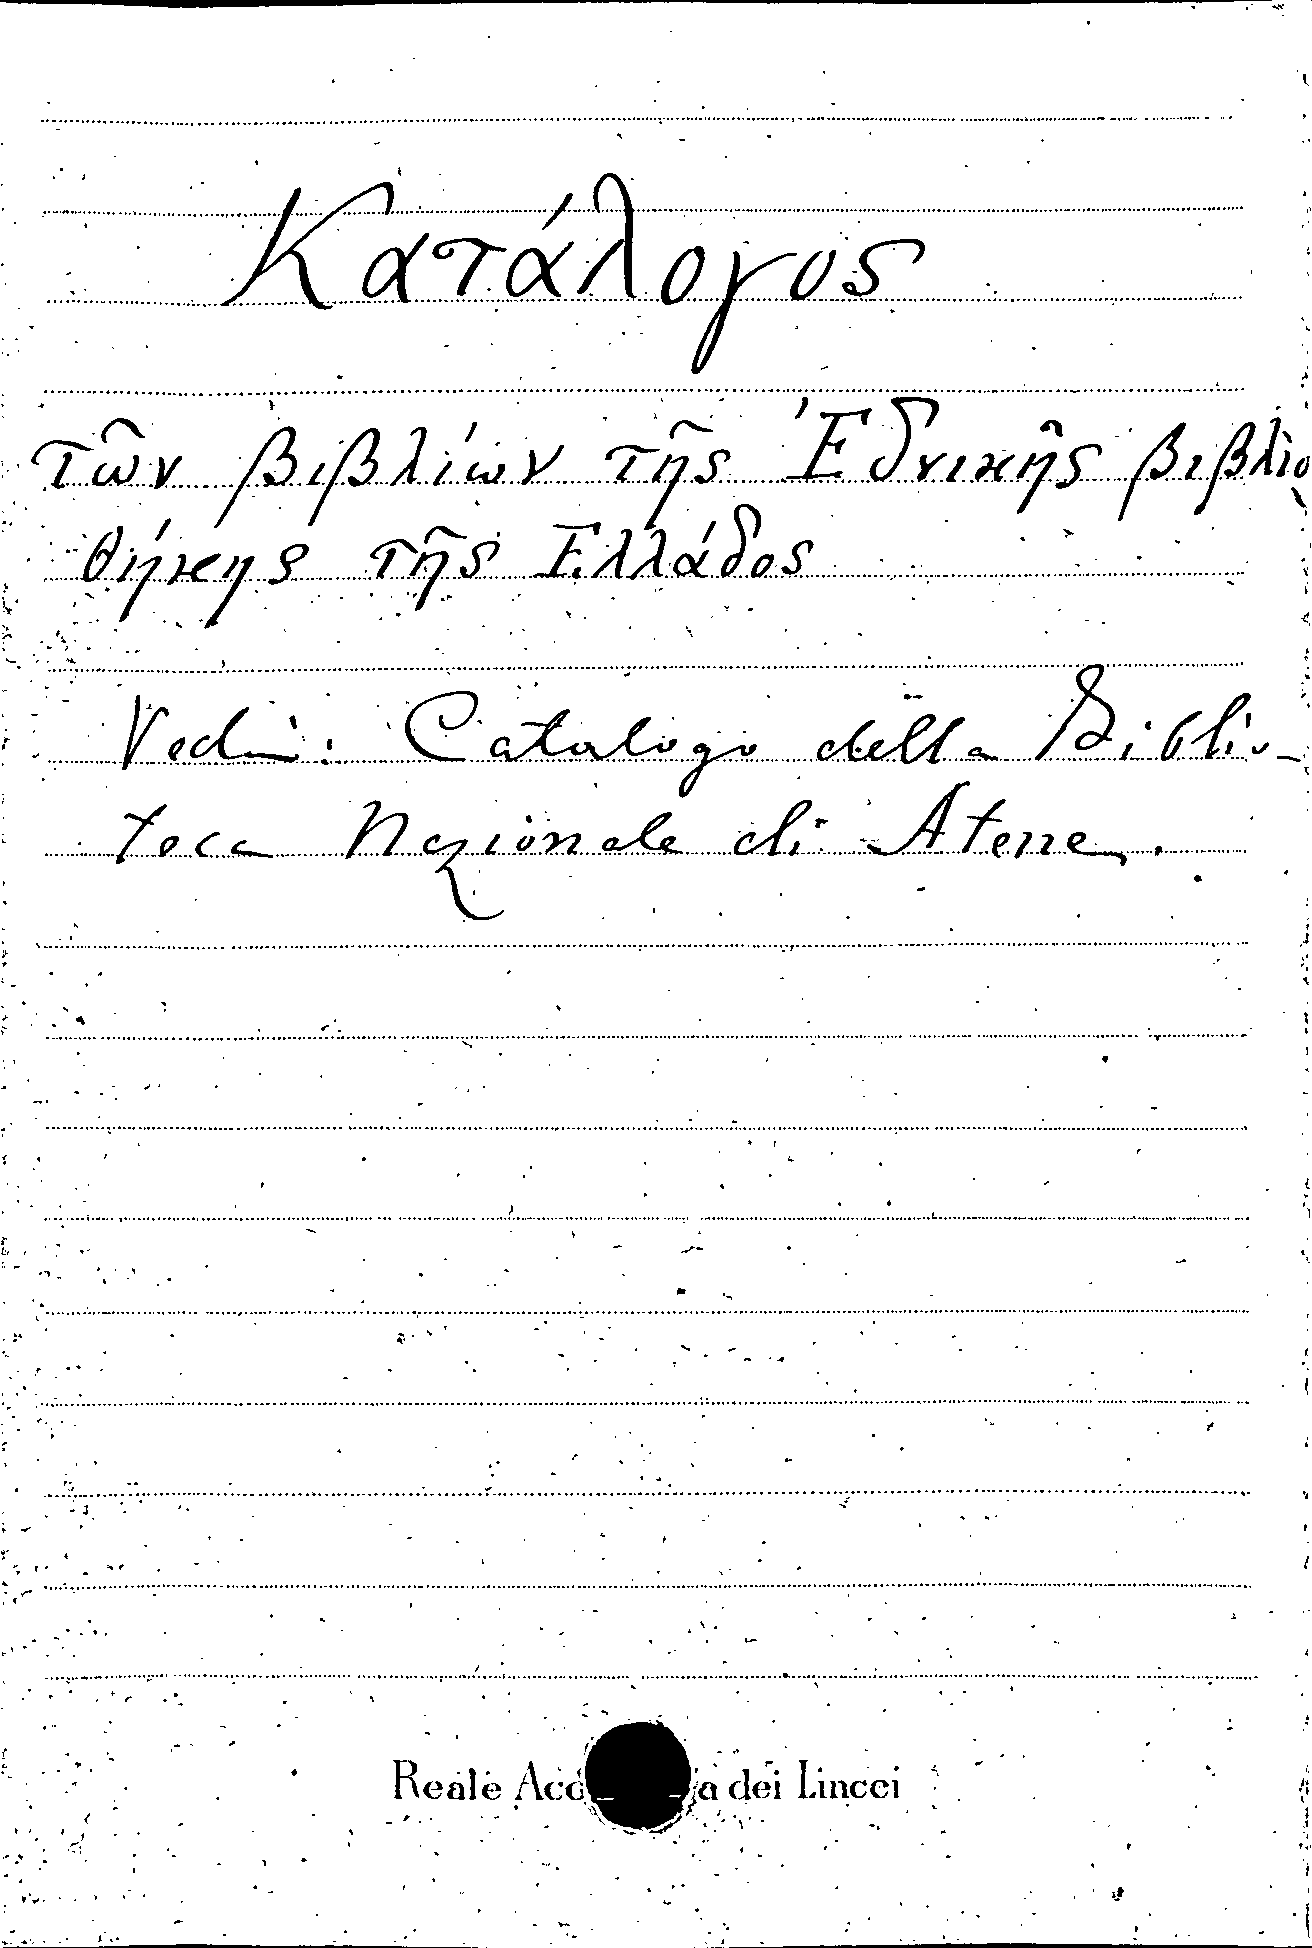 Κατάλογος
τῶν βιβλίων τῆς Ἐδνικῆς βιβλιο
θήκης τῆς Ελλάδος
Vedi: Catalogo della Biblio-
teca Nazionale di Atene.
Reale Acc a dei Lincei